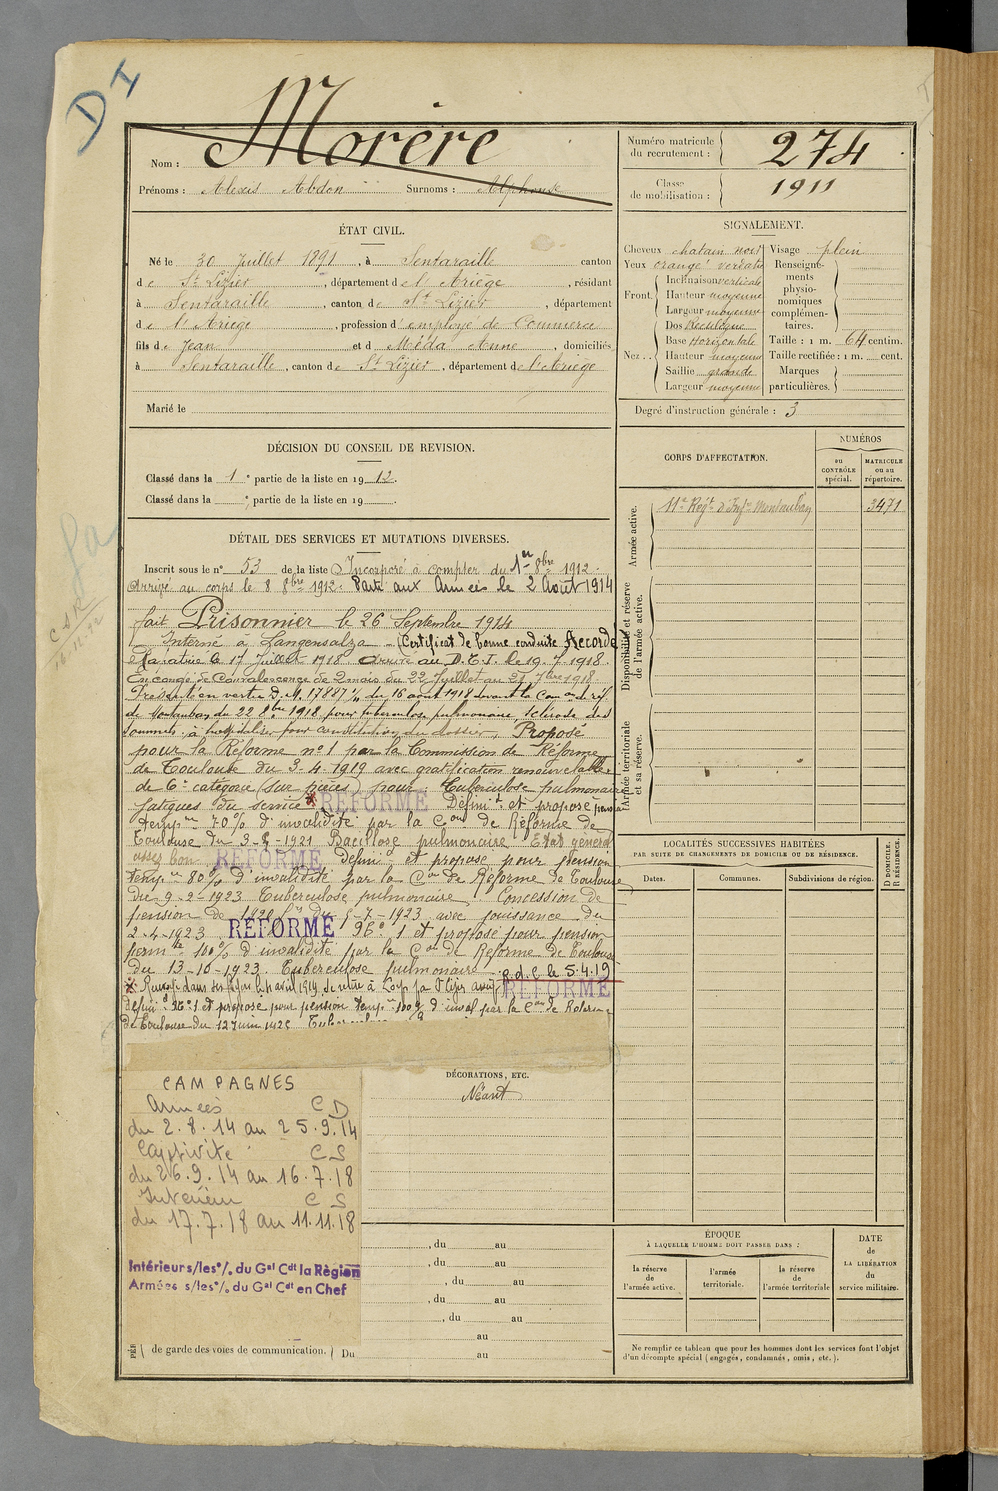 D I
Nom : Morère
Prénoms : Alexis Abdon Surnoms : Alphonse
Numéro matricule du recrutement : 274
Classe de mobilisation : 1911
ÉTAT CIVIL.
Né le 30 Juillet 1891, à Sentaraille canton
de St Lizier, département de l'Ariège, résidant
à Sentaraille, canton de St Lizier, département
de l'Ariège, profession d'employé de Commerce
fils de Jean et de Méda Anne, domiciliés
à Sentaraille, canton de St Lizier, département de l'Ariège
Marié le
SIGNALEMENT.
Cheveux chatain noir Visage plein
Yeux orangé verdatre
Front. Inclinaison verticale
Hauteur moyenne
Largeur moyenne
Nez. Dos Rectiligne
Base Horizontale
Hauteur moyenne
Saillie grande
Largeur moyenne
Renseignements physionomiques complémentaires.
Taille : 1 m. 64 centim.
Taille rectifiée : 1 m. cent.
Marques particulières.
Degré d'instruction générale : 3
DÉCISION DU CONSEIL DE REVISION.
Classé dans la 1e partie de la liste en 1912.
Classé dans la e partie de la liste en 19 .
CORPS D'AFFECTATION.
NUMÉROS
au CONTRÔLE spécial.
MATRICULE ou au répertoire.
Armée active.
11e Regt d'Infie Montauban 3471
Disponibilité et réserve de l'armée active.
Armée territoriale et sa réserve.
DÉTAIL DES SERVICES ET MUTATIONS DIVERSES.
Inscrit sous le n° 53 de la liste Incorporé à compter du 1er 8bre 1912.
Arrivé au corps le 8 8bre 1912. Parti aux Armées le 2 Août 1914
fait Prisonnier le 26 Septembre 1914
Interné à Langensalza - Certificat de bonne conduite Accordé
Rapatrié le 17 Juillet 1918. Arrivé au D.C.I. le 19.7.1918.
En congé de Convalescence de 2 mois du 22 Juillet au 21 7bre 1918
Présenté en vertu D.M. 17887 du 16 août 1918 devant la Com on de réf
de Montauban du 22 8bre 1918 pour tuberculose pulmonaire sclérose des
sommets, à hospitaliser pour constitution du dossier. Proposé
pour la Réforme n° 1 par la Commission de Réforme
de Toulouse du 3-4-1919 avec gratification renouvelable
de 6e catégorie (sur pièces) pour Tuberculose pulmonaire
fatigues du service * REFORMÉ Défini t et proposé pension
temp re 70% d'invalidité par la Con de Réforme de
Toulouse du 1921 Bacillose pulmonaire Etat général
assez bon. REFORMÉ Défini t et proposé pour pension
temp re 80% d'invalidité par la Con de Réforme de Toulouse
du 9-2-1923 Tuberculose pulmonaire. Concession de
pension de du 5-7-1923 avec jouissance du
2-4-1923. REFORMÉ et proposé pour pension
perm te 100% d'invalidité par la Con de Réforme de Toulouse
du 13-10-1923. Tuberculose pulmonaire. R.d.C. le 5.4.19
REFORMÉ
* avril 1919. Se retire à
défini et proposé pour pension temp 100% d'inval par la Con de Réforme
de Toulouse du 12 Juin 1925
LOCALITÉS SUCCESSIVES HABITÉES
PAR SUITE DE CHANGEMENTS DE DOMICILE OU DE RÉSIDENCE.
Dates. Communes. Subdivisions de région.
D DOMICILE. R RÉSIDENCE.
CAMPAGNES
Armées CD
du 2.8.14 au 25.9.14
Captivité CS
du 26.9.14 au 16.7.18
Intérieur CS
du 17.7.18 au 11.11.18
Intérieur s/les°/. du Gal Cdt la Région
Armées s/les°/. du Gal Cdt en Chef
DÉCORATIONS, ETC.
Néant
, du au
, du au
, du au
, du au
, du au
au
de garde des voies de communication. Du au
ÉPOQUE
À LAQUELLE L'HOMME DOIT PASSER DANS :
la réserve de l'armée active.
l'armée territoriale.
la réserve de l'armée territoriale
DATE de LA LIBÉRATION du service militaire.
Ne remplir ce tableau que pour les hommes dont les services font l'objet
d'un décompte spécial (engagés, condamnés, omis, etc.).